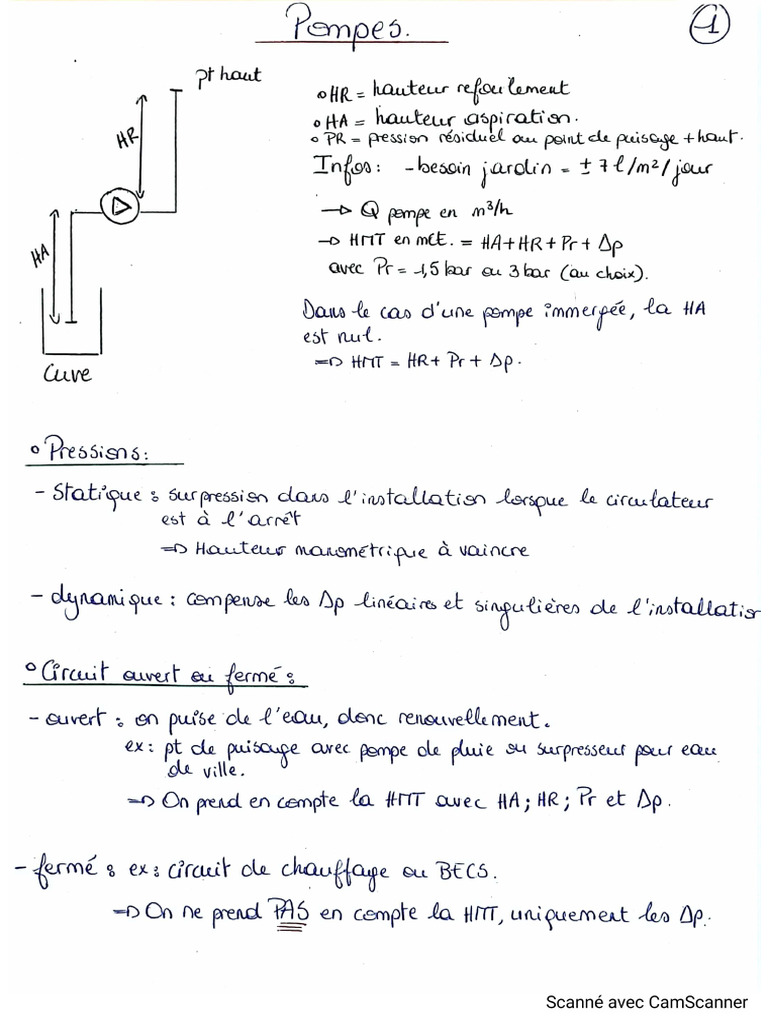 Pompes.
1
pt haut
HR
HA
Cuve
o HR = hauteur refoulement
o HA = hauteur aspiration.
o PR = pression résiduel au point de puisage + haut.
Infos: - besoin jardin = ± 7 l/m²/jour
→ Q pompe en m³/h
→ HMT en mCE. = HA + HR + Pr + Δp
avec Pr = 1,5 bar ou 3 bar (au choix).
Dans le cas d'une pompe immergée, la HA
est nul.
⇒ HMT = HR + Pr + Δp.
o Pressions:
- Statique : surpression dans l'installation lorsque le circulateur
est à l'arrêt
⇒ Hauteur manométrique à vaincre
- dynamique : compense les Δp linéaires et singulières de l'installatio
o Circuit ouvert ou fermé :
- ouvert : on puise de l'eau, donc renouvellement.
ex : pt de puisage avec pompe de pluie ou surpresseur pour eau
de ville.
⇒ On prend en compte la HMT avec HA ; HR ; Pr et Δp.
- fermé : ex : circuit de chauffage ou BECS.
⇒ On ne prend PAS en compte la HMT, uniquement les Δp.
Scanné avec CamScanner